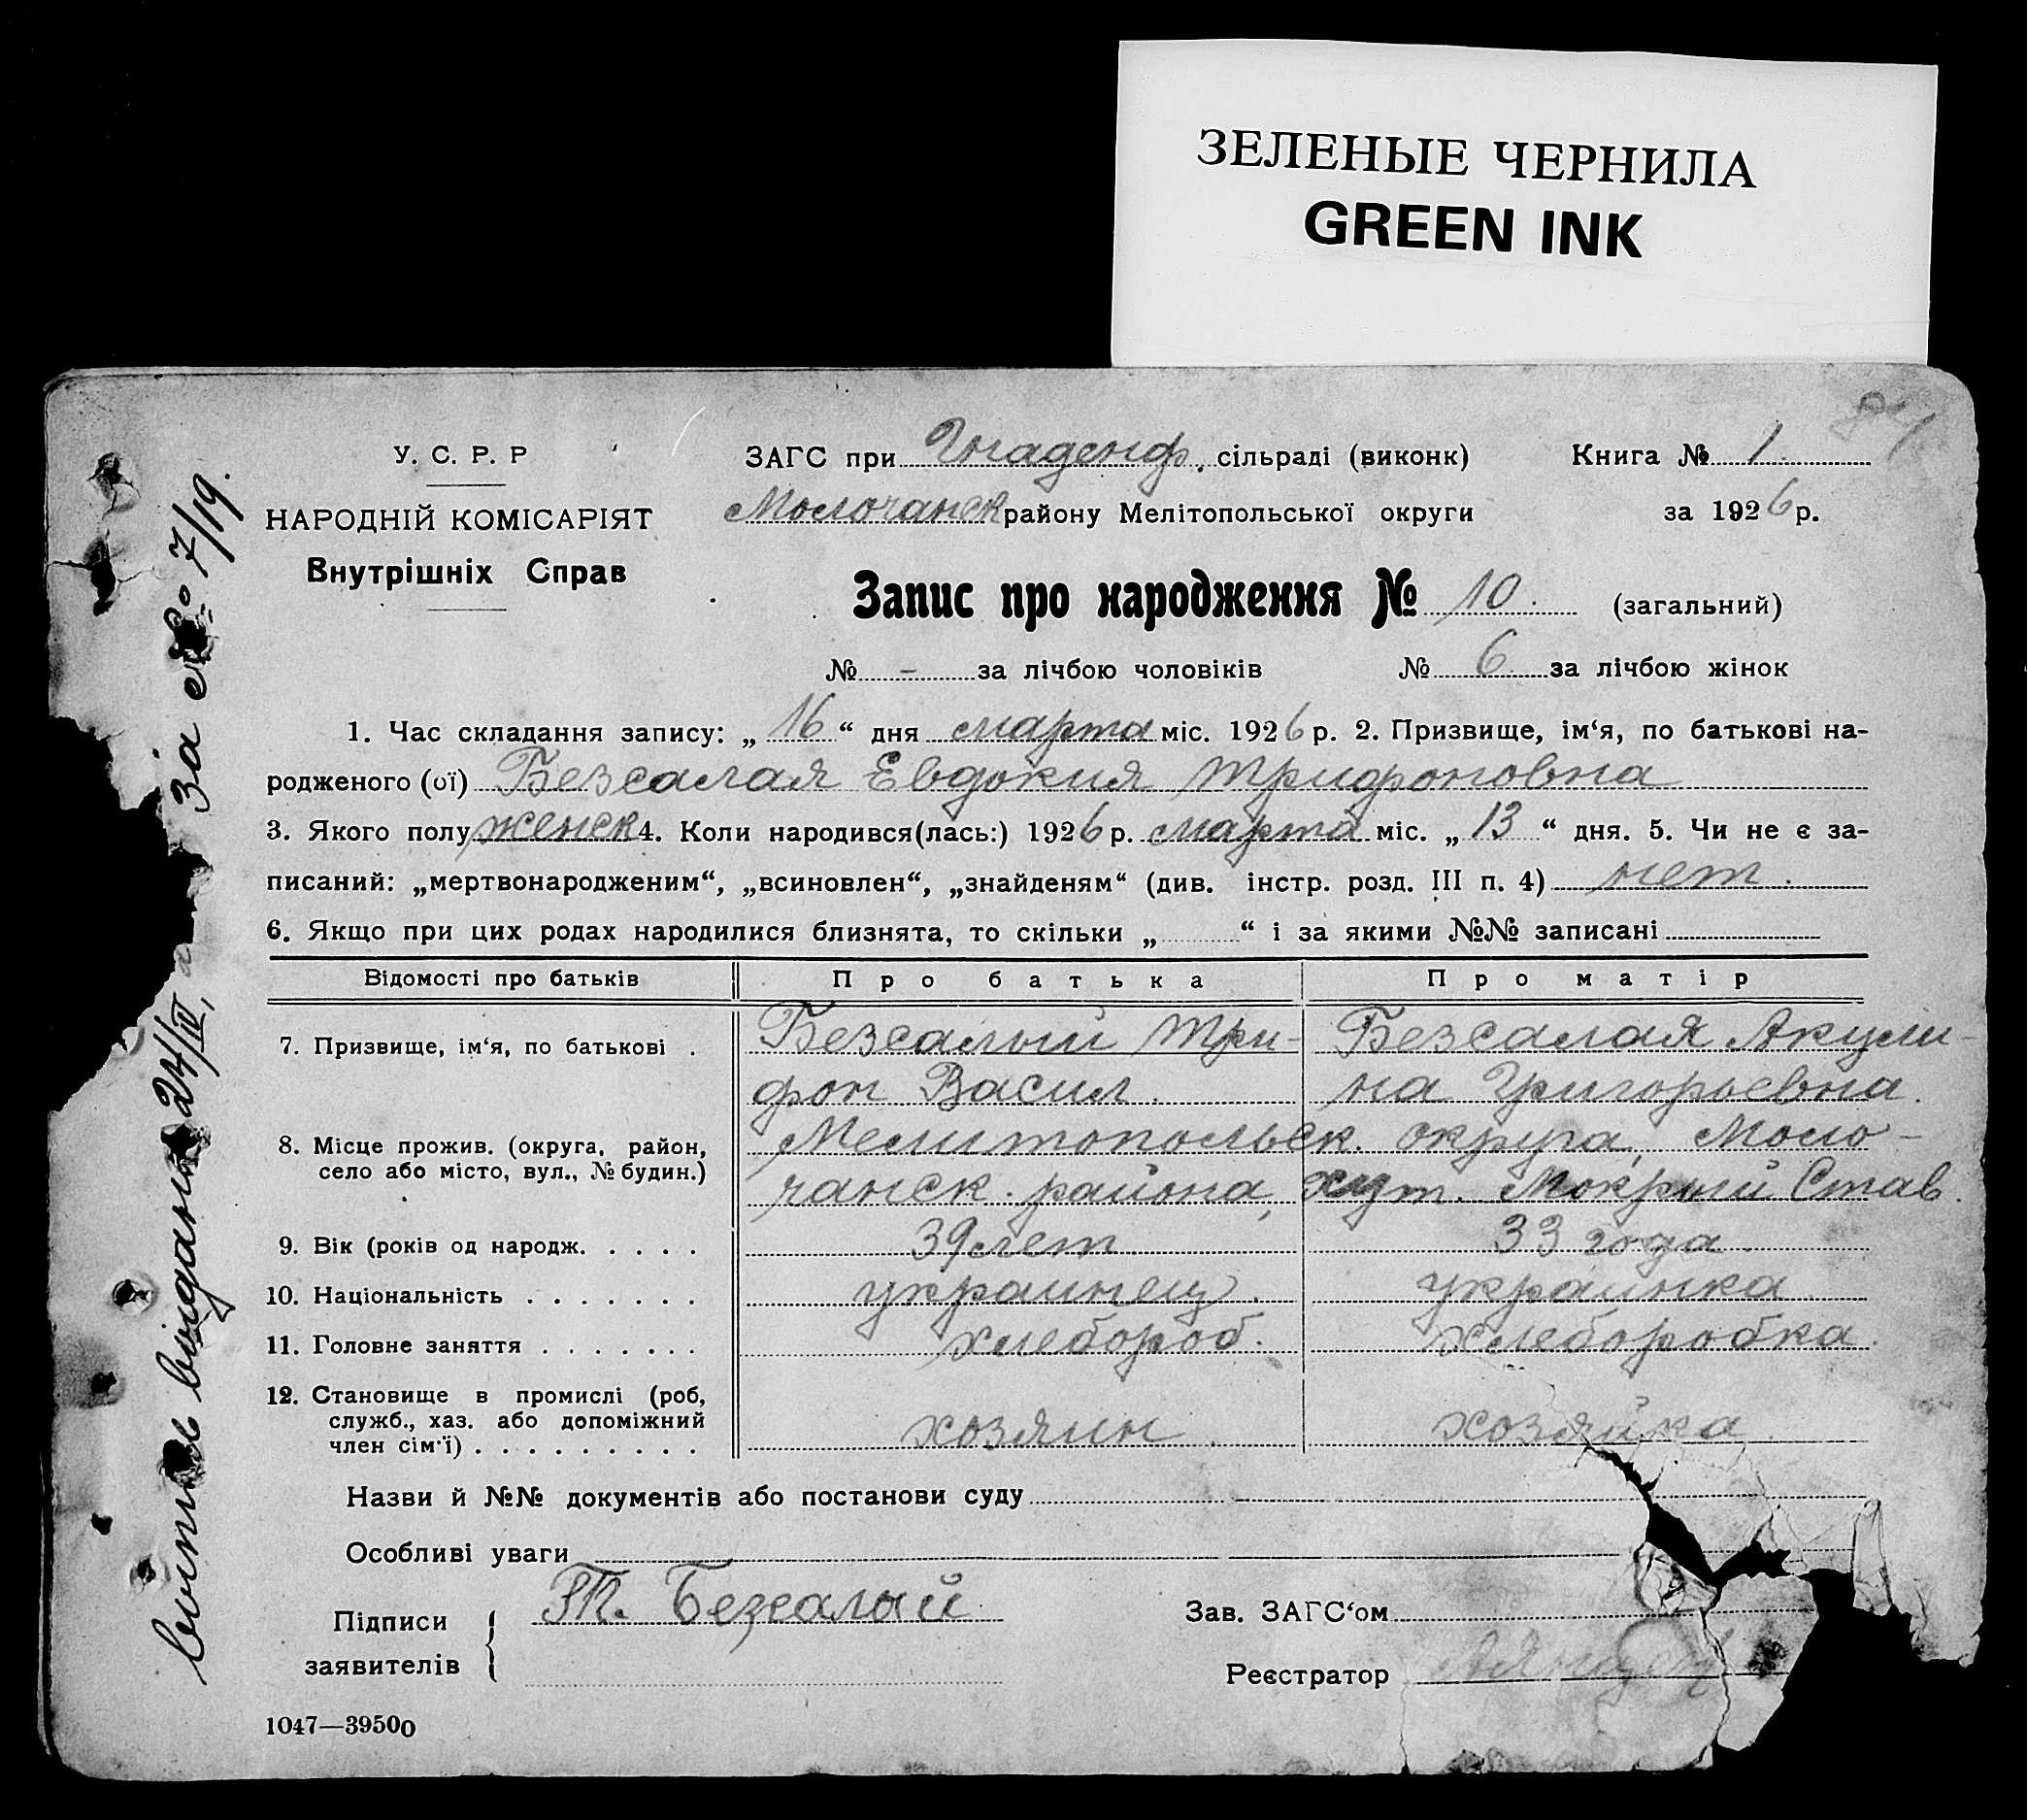 ЗЕЛЕНЫЕ ЧЕРНИЛА
GREEN INK
84
У. С. Р. Р
НАРОДНІЙ КОМІСАРІЯТ
Внутрішніх Справ
ЗАГС при Гнаденф. сільраді (виконк)
Книга № 1.
Молочанск району Мелітопольської округи
за 1926 р.
Запис про народження № 10. (загальний)
№ - за лічбою чоловіків № 6 за лічбою жінок
1. Час складання запису: „ 16 “ дня марта міс. 1926 р. 2. Призвище, ім‘я, по батькові на-
родженого (ої) Безсалая Евдокия Трифоновна
3. Якого полу женск 4. Коли народився(лась:) 1926 р. марта міс. „ 13 “ дня. 5. Чи не є за-
писаний: „мертвонародженим“, „всиновлен“, „знайденям“ (див. інстр. розд. III п. 4) нет.
6. Якщо при цих родах народилися близнята, то скільки „ “ і за якими №№ записані
Відомості про батьків Про батька Про матір
7. Призвище, ім‘я, по батькові . Безсалый Три- Безсалая Акули-
фон Васил. на Григорьевна.
8. Місце прожив. (округа, район, Мелитопольск. округа, Моло-
село або місто, вул., № будин.) чанск. района, хут. Мокрый Став.
9. Вік (років од народж. . . . . 39 лет 33 года
10. Національність . . . . . . . украинец. украинка
11. Головне заняття . . . . . . . хлебороб. хлеборобка.
12. Становище в промислі (роб,
служб., хаз. або допоміжний
член сім‘ї) . . . . . . . . . хозяин. хозяйка
Назви й №№ документів або постанови суду
Особливі уваги
Підписи
заявителів
Т. Безсалый
Зав. ЗАГС‘ом
Реєстратор
1047—39500
выпись выдана 24/IV, за № 7/19.